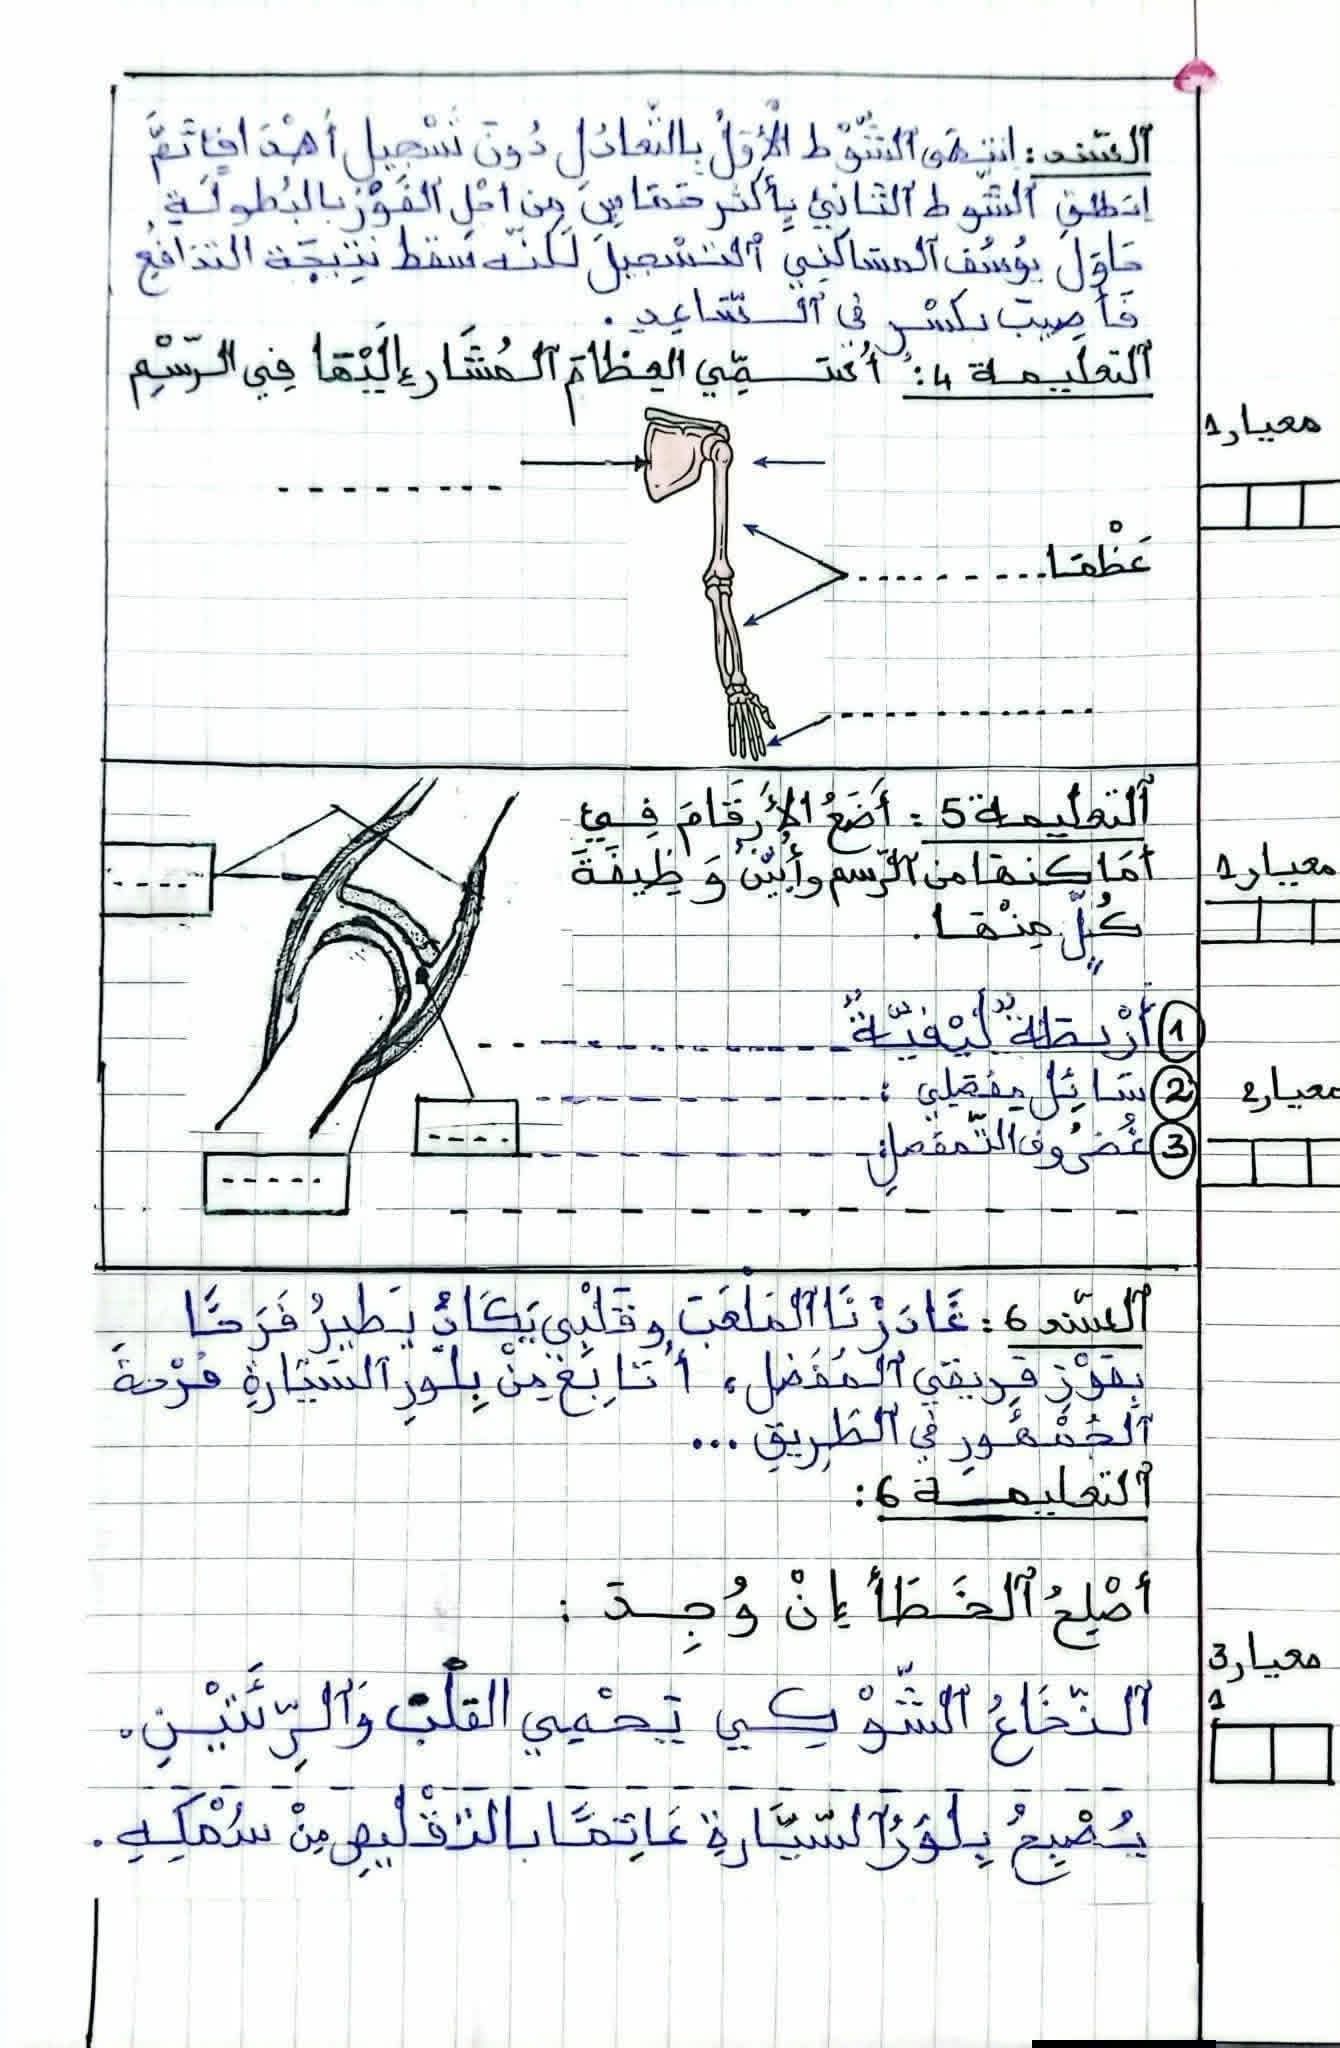 السّند: انتهى الشّوْط الأوّلُ بالتّعادُلِ دُونَ تَسْجيلِ أهْدَافٍ ثُمَّ
انطلق الشّوط الثاني بِأكثر حَمَاسٍ مِن أجْلِ الفَوْزِ بالبُطولَةِ.
حَاوَلَ يُوسُف المساكني التّسْجيلَ لَكنّه سَقط نتيجَة التدافُعِ
فَأصِيبَ بكسْرٍ في السَّاعِدِ.
التعليمة 4: أُسَمِّي العِظامَ المُشَارَ إلَيْهَا فِي الرّسْمِ
معيار 1
--------
عَظْمَا.........
............
التعليمة 5: أَضَعُ الأرْقَامَ فِي
أمَاكنها من الرّسم وأُبَيّنُ وَظِيفَةَ
كُلٍّ مِنْهَا.
معيار 1
① أرْبطَةٌ لَيْفيّةٌ
② سَائل مفصلي:
③ غُضرُوف التّمفصل
معيار 2
السّند 6: غَادَرْنَا المَلعَبَ وقَلْبِي يَكَادُ يَطيرُ فَرَحًا
بِفَوْزِ فَرِيقي المُفَضل، أُتَابِعُ مِنْ بِلّورِ السّيّارَةِ فَرْحَةَ
الجُمْهُورِ في الطّريقِ ...
التعليمة 6:
أصْلِحُ الخَطَأ إنْ وُجِدَ:
معيار 3
أ
النّخَاعُ الشّوْكِي يَحْمِي القلْبَ وَالرِّئَتَيْنِ.
يُصْبِحُ بِلوَرُ السّيَّارةِ عَاتِمًا بالتّقْلِيصِ مِنْ سُمْكِهِ.